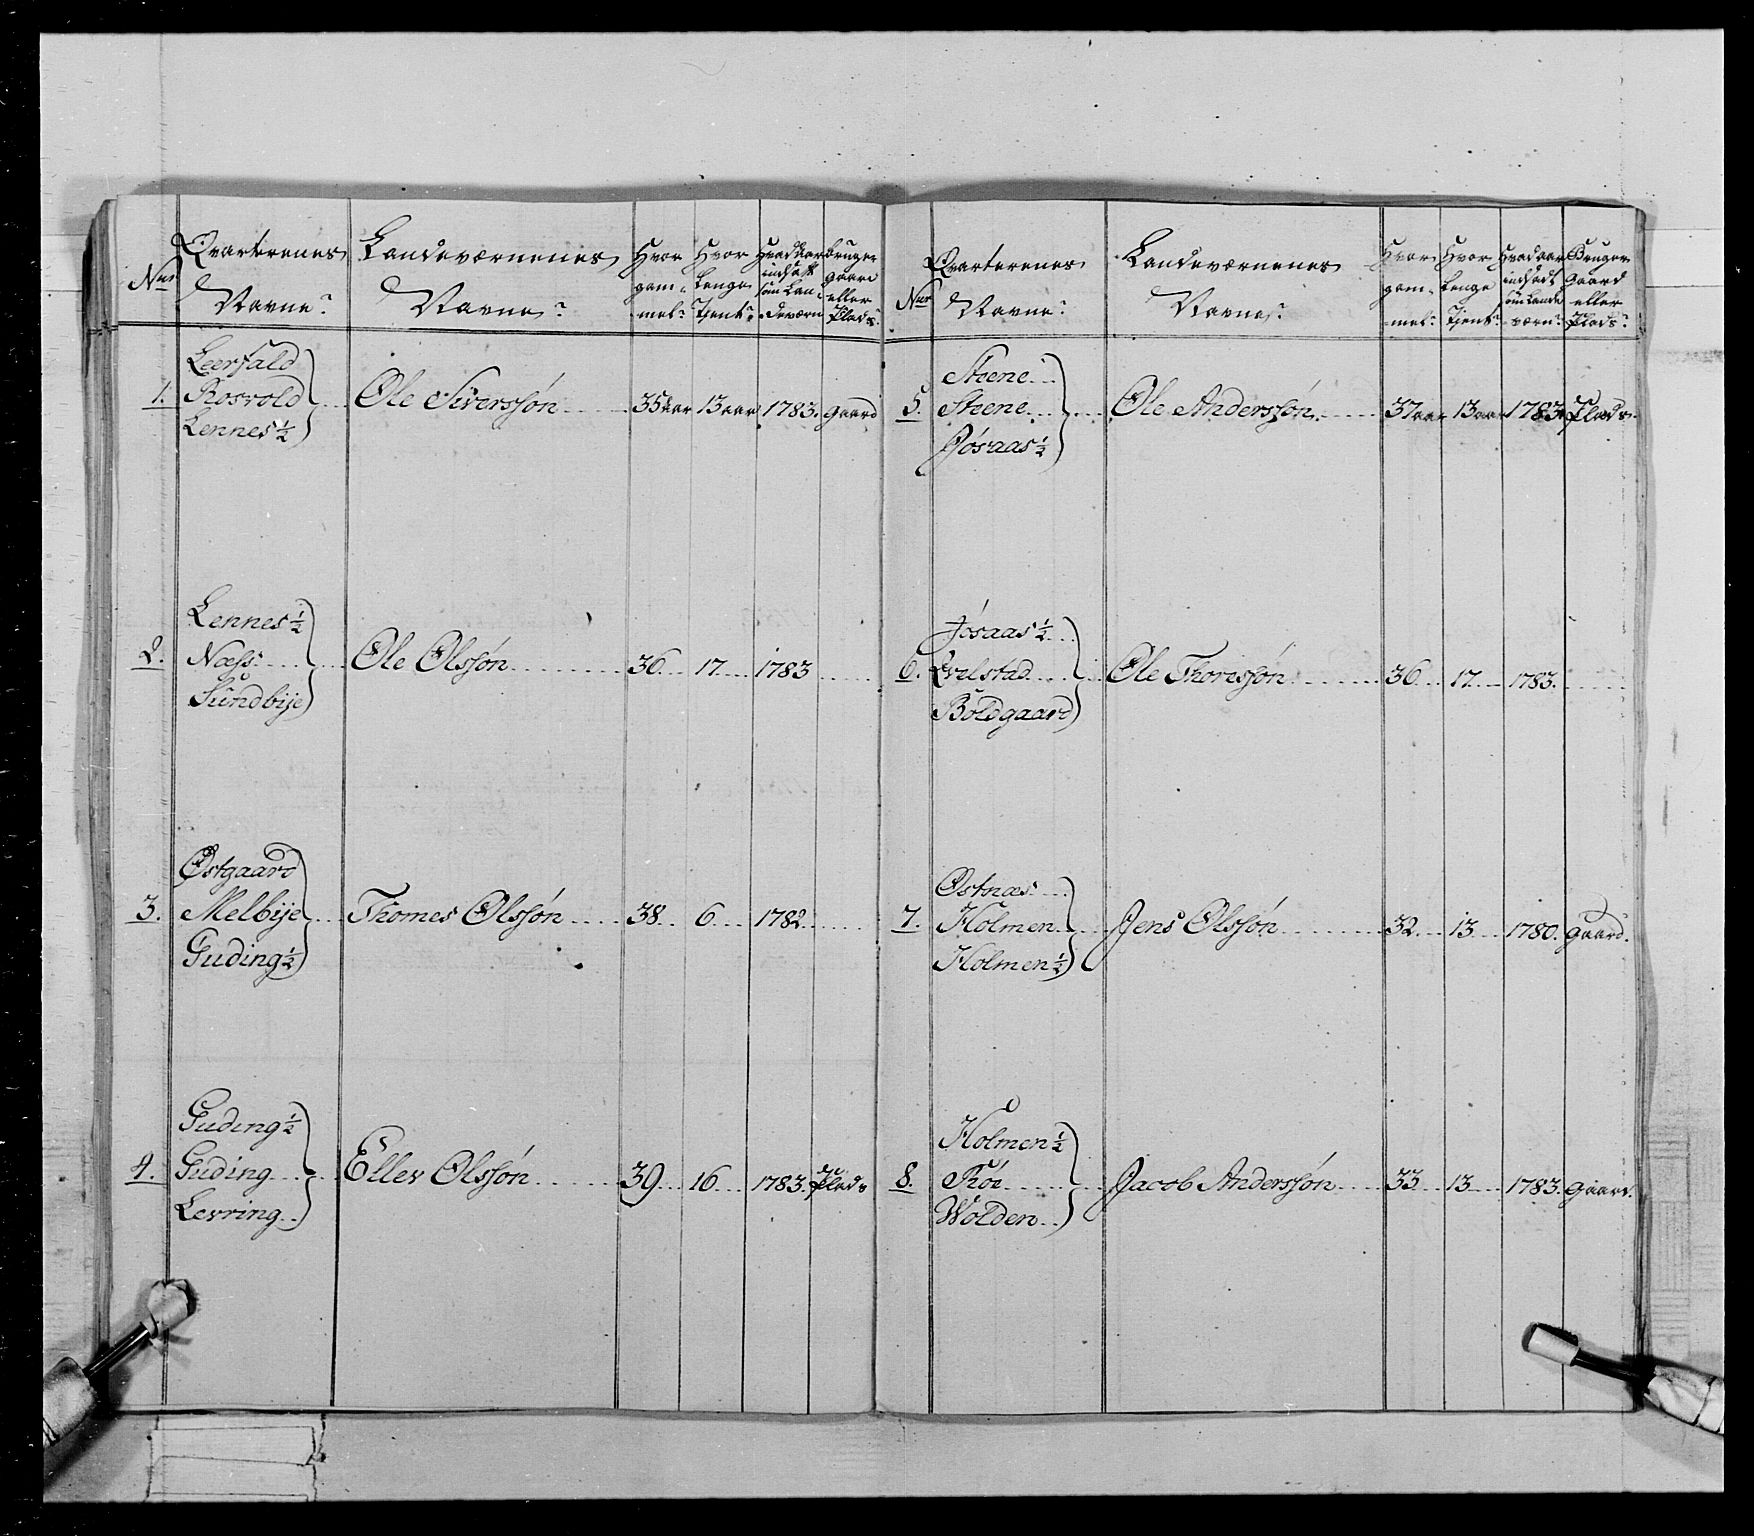 Nur
Qvarterenes
Navne?
Landeværnenes
Navne?
Hvor
gam-
mel?
Hvor
længe
Tjent?
Hvad Aar
indsatt
som Lan-
deværn
bruger
gaard
eller
Plads?
1. Leerfald
Rosvold
Lennes ½
Ole Siverssøn 35 aar 13 aar 1783. gaard
2. Lennes ½
Næss
Sundbÿe
Ole Olssøn 36 17 1783
3. Østgaard
Melbÿe
Guding ½
Thomes Olssøn 38 6 1782
4. Guding ½
Guding
Levring
Ellev Olssøn 39 16 1783. Plads
Nur
Qvarterenes
Navne?
Landeværnenes
Navne?
Hvor
gam-
mel?
Hvor
længe
Tjent?
Hvad aar
indsadt
som Lande
værn?
Bruger
Gaard
eller
Plads?
5. Steene
Steene
Jøsaas ½
Ole Anderssøn 37 aar 13 aar 1783. Plads
6. Jøsaas ½
Qvelstad
Boldgaard
Ole Thoressøn 36 17 1783.
7. Østnæs
Holmen
Holmen ½
Jens Olssøn 32 13 1780. gaard.
8. Holmen ½
Röe
Wolden
Jacob Anderssøn 33 13 1783. gaard.